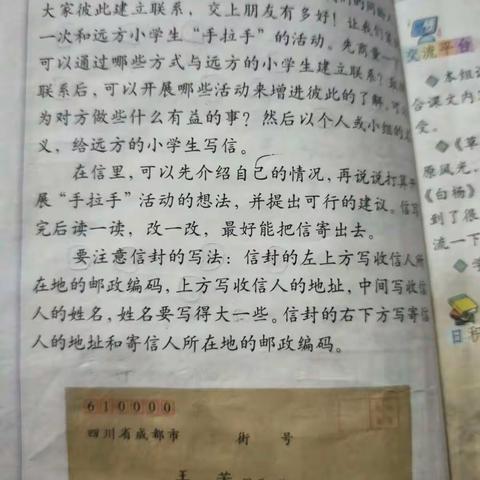 大家彼此建立联系，交上朋友有多好！让我们
一次和远方小学生“手拉手”的活动。先商量一
可以通过哪些方式与远方的小学生建立联系？
联系后，可以开展哪些活动来增进彼此的了解，可
为对方做些什么有益的事？然后以个人或小组的
义，给远方的小学生写信。
在信里，可以先介绍自己的情况，再说说打算
展“手拉手”活动的想法，并提出可行的建议。信写
完后读一读，改一改，最好能把信寄出去。
要注意信封的写法：信封的左上方写收信人所
在地的邮政编码，上方写收信人的地址，中间写收信
人的姓名，姓名要写得大一些。信封的右下方写寄信
人的地址和寄信人所在地的邮政编码。
610000
四川省成都市 街 号
王
交流平台
本组
合课文内
受。
《草
原风光，
《白杨》
到了很
流一下
日积